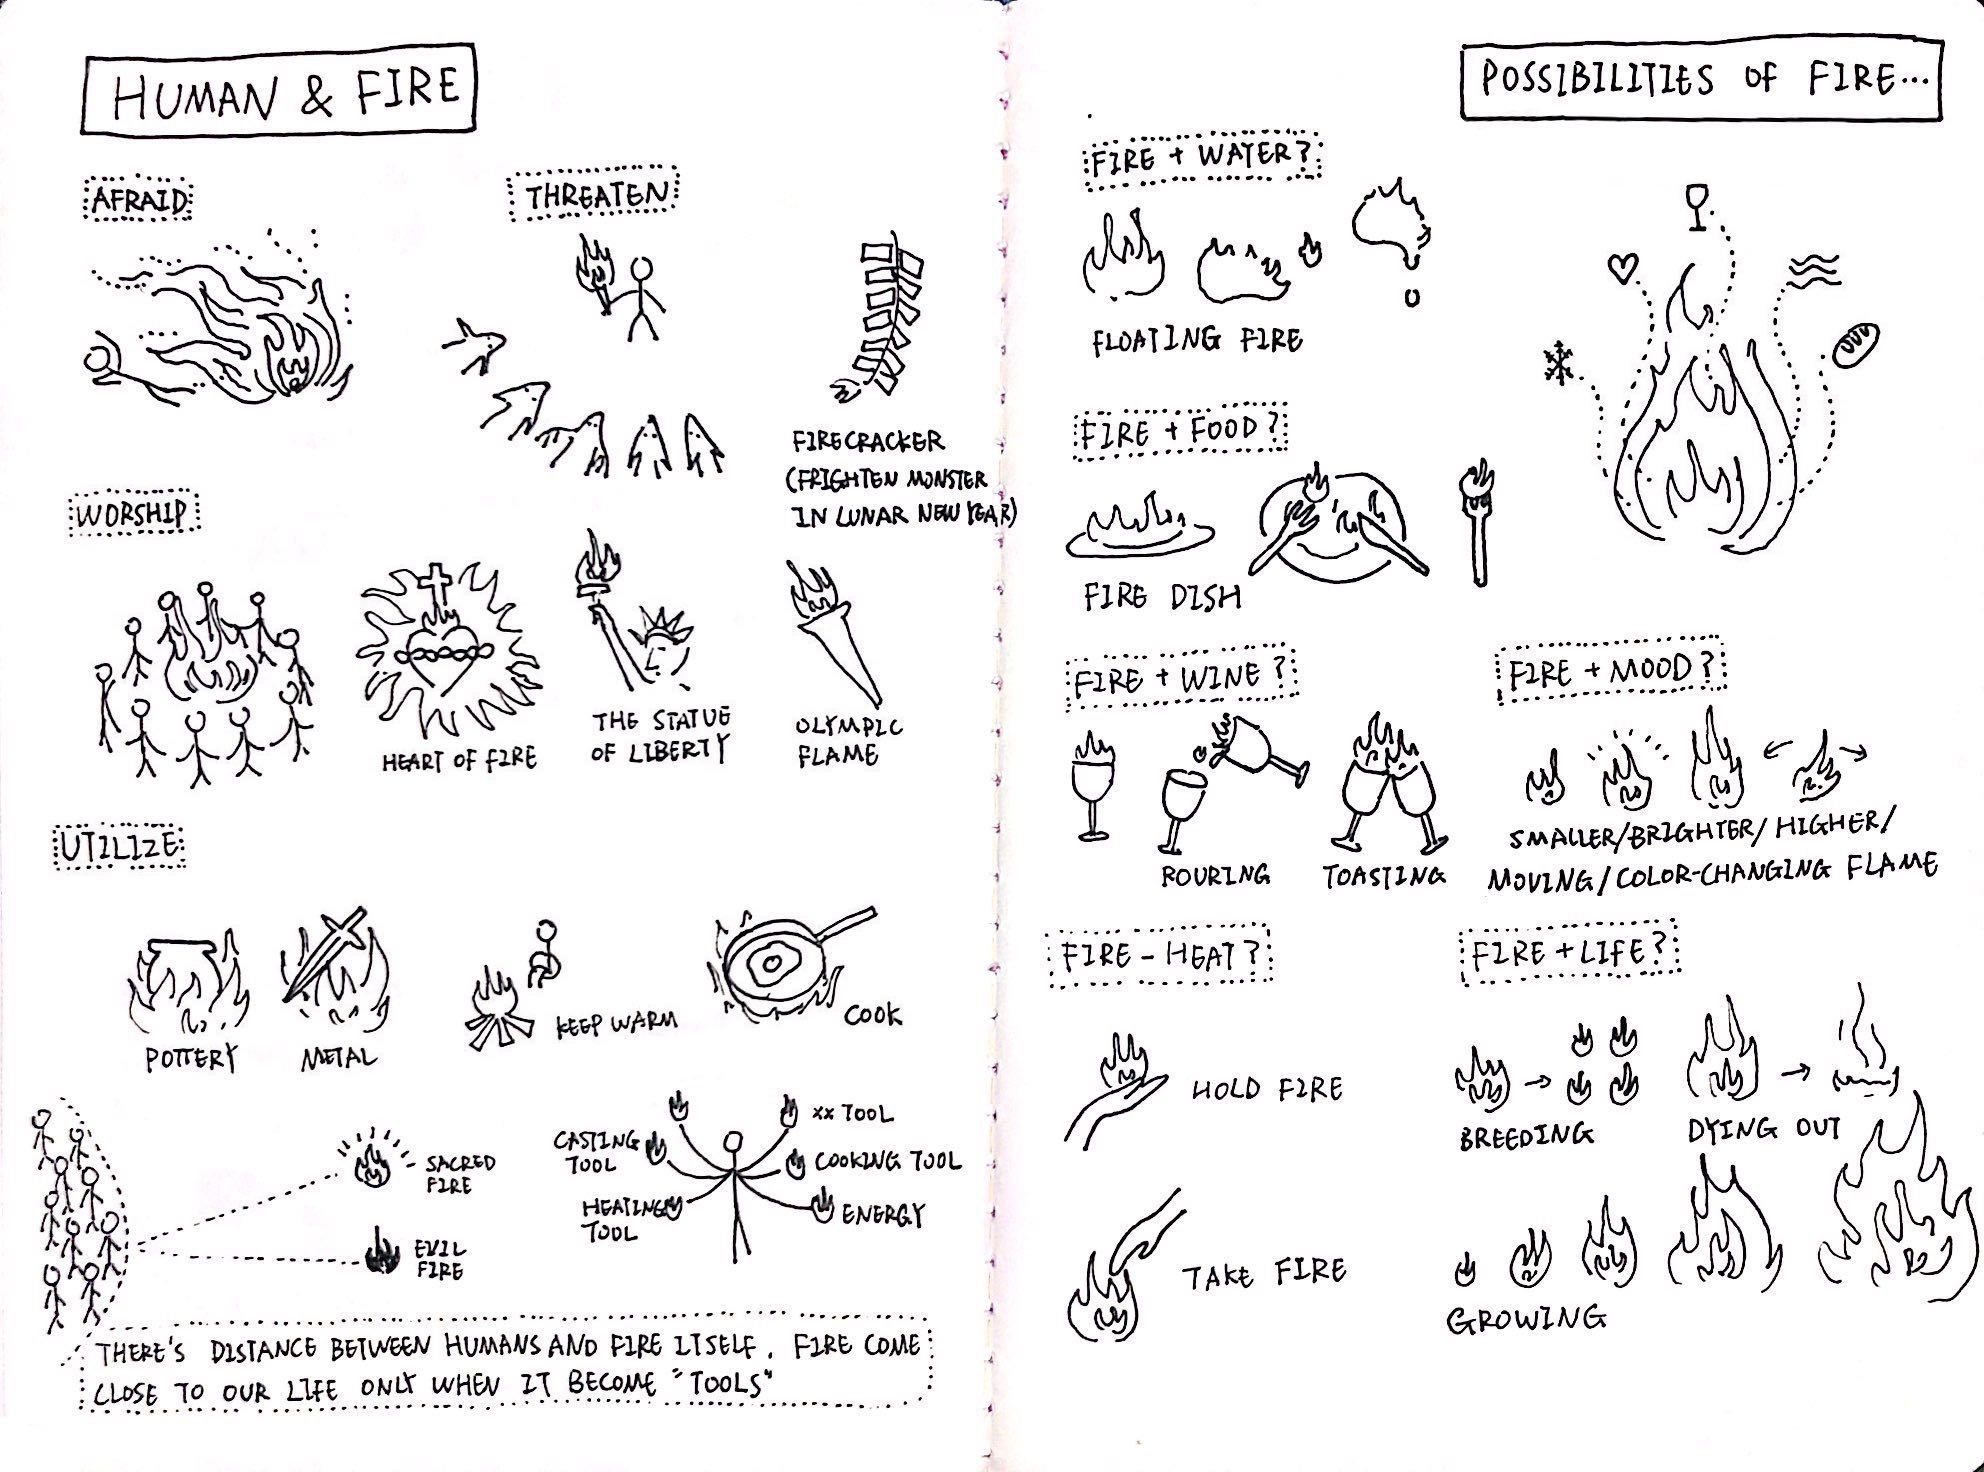 HUMAN & FIRE
AFRAID
THREATEN
FIRECRACKER
(FRIGHTEN MONSTER
IN LUNAR NEW YEAR)
WORSHIP
HEART OF FIRE
THE STATUE
OF LIBERTY
OLYMPIC
FLAME
UTILIZE
POTTERY
METAL
KEEP WARM
COOK
SACRED
FIRE
EVIL
FIRE
CASTING
TOOL
HEATING
TOOL
XX TOOL
COOKING TOOL
ENERGY
THERE'S DISTANCE BETWEEN HUMANS AND FIRE ITSELF. FIRE COME
CLOSE TO OUR LIFE ONLY WHEN IT BECOME "TOOLS"
POSSIBILITIES OF FIRE...
FIRE + WATER?
FLOATING FIRE
FIRE + FOOD?
FIRE DISH
FIRE + WINE?
POURING
TOASTING
FIRE + MOOD?
SMALLER/BRIGHTER/HIGHER/
MOVING/COLOR-CHANGING FLAME
FIRE - HEAT?
HOLD FIRE
TAKE FIRE
FIRE + LIFE?
BREEDING
DYING OUT
GROWING